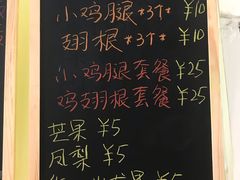 小鸡腿*3个 ¥10
翅根*3个 ¥10
小鸡腿套餐 ¥25
鸡翅根套餐 ¥25
芒果 ¥5
凤梨 ¥5
¥5